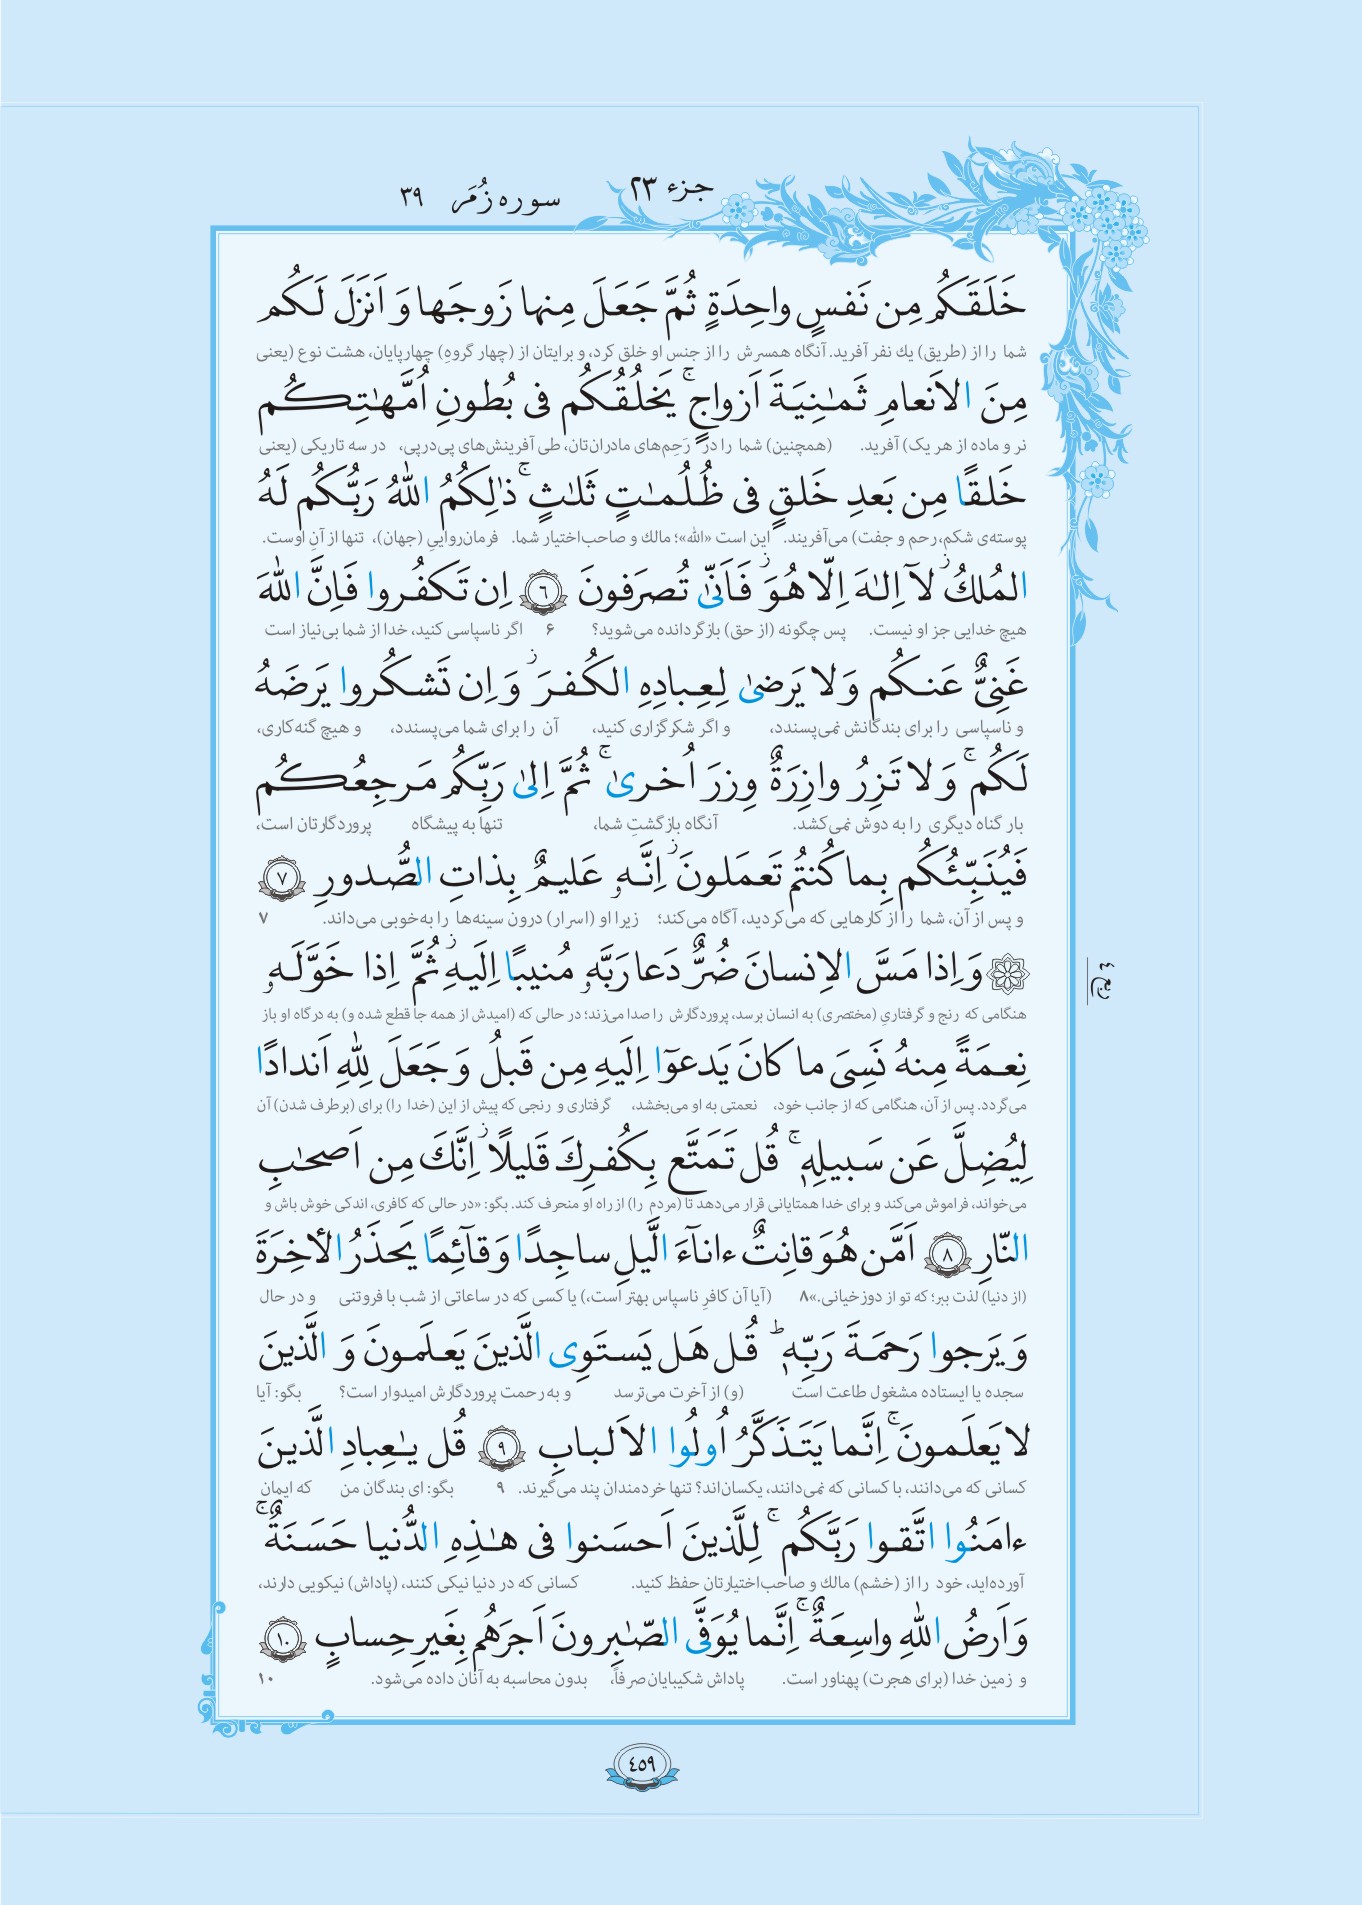 جزء ۲۳
سوره زُمَر ۳۹
خَلَقَكُم مِن نَفسٍ واحِدَةٍ ثُمَّ جَعَلَ مِنها زَوجَها وَ اَنزَلَ لَكُم
شما را از (طریق) یك نفر آفرید. آنگاه همسرش را از جنس او خلق كرد، و برایتان از (چهار گروهِ) چهارپایان، هشت نوع (یعنی
مِنَ الاَنعامِ ثَمٰنِيَةَ اَزواجٍ ۚ يَخلُقُكُم فی بُطونِ اُمَّهٰتِكُم
نر و ماده از هر یک) آفرید. (همچنین) شما را در رَحِم‌های مادران‌تان، طی آفرینش‌های پی‌درپی، در سه تاریکی (یعنی
خَلقًا مِن بَعدِ خَلقٍ فی ظُلُمٰتٍ ثَلٰثٍ ۚ ذٰلِكُمُ اللهُ رَبُّكُم لَهُ
پوسته‌ی شکم، رحم و جفت) می‌آفریند. این است «الله»؛ مالك و صاحب‌اختیار شما. فرمان‌رواییِ (جهان)، تنها از آنِ اوست.
المُلكُ ۖ لآ اِلٰهَ اِلّا هُوَ ۖ فَاَنّیٰ تُصرَفونَ ۶ اِن تَكفُروا فَاِنَّ اللهَ
هیچ خدایی جز او نیست. پس چگونه (از حق) بازگردانده می‌شوید؟ ۶ اگر ناسپاسی کنید، خدا از شما بی‌نیاز است
غَنِیٌّ عَنكُم وَ لا يَرضیٰ لِعِبادِهِ الكُفرَ ۖ وَ اِن تَشكُروا يَرضَهُ
و ناسپاسی را برای بندگانش نمی‌پسندد، و اگر شکرگزاری کنید، آن را برای شما می‌پسندد، و هیچ گنه‌کاری،
لَكُم ۚ وَ لا تَزِرُ وازِرَةٌ وِزرَ اُخریٰ ۚ ثُمَّ اِلیٰ رَبِّكُم مَرجِعُكُم
بار گناه دیگری را به دوش نمی‌کشد. آنگاه بازگشتِ شما، تنها به پیشگاه پروردگارتان است،
فَيُنَبِّئُكُم بِما كُنتُم تَعمَلونَ ۚ اِنَّهو عَليمٌ بِذاتِ الصُّدورِ ۷
و پس از آن، شما را از کارهایی که می‌کردید، آگاه می‌کند؛ زیرا او (اسرار) درون سینه‌ها را به‌خوبی می‌داند. ۷
۞ وَ اِذا مَسَّ الاِنسانَ ضُرٌّ دَعا رَبَّهو مُنيبًا اِلَيهِ ثُمَّ اِذا خَوَّلَهو
هنگامی که رنج و گرفتاریِ (مختصری) به انسان برسد، پروردگارش را صدا می‌زند؛ در حالی که (امیدش از همه جا قطع شده و) به درگاه او باز
ربع ٤
نِعمَةً مِنهُ نَسِیَ ما كانَ يَدعوٓا اِلَيهِ مِن قَبلُ وَ جَعَلَ لِلّهِ اَندادًا
می‌گردد. پس از آن، هنگامی که از جانب خود، نعمتی به او می‌بخشد، گرفتاری و رنجی که پیش از این (خدا را) برای (برطرف شدن) آن
لِيُضِلَّ عَن سَبيلِه ۚ قُل تَمَتَّع بِكُفرِكَ قَليلًا ۖ اِنَّكَ مِن اَصحٰبِ
می‌خواند، فراموش می‌کند و برای خدا همتایانی قرار می‌دهد تا (مردم را) از راه او منحرف کند. بگو: «در حالی که کافری، اندکی خوش باش و
النّارِ ۸ اَمَّن هُوَ قانِتٌ ءانآءَ الَّيلِ ساجِدًا وَ قآئِمًا يَحذَرُ الأخِرَةَ
(از دنیا) لذت ببر؛ که تو از دوزخیانی.» ۸ (آیا آن کافرِ ناسپاس بهتر است،) یا کسی که در ساعاتی از شب با فروتنی و در حال
وَ يَرجوا رَحمَةَ رَبِّه ۗ قُل هَل يَستَوِی الَّذينَ يَعلَمونَ وَ الَّذينَ
سجده یا ایستاده مشغول طاعت است (و) از آخرت می‌ترسد و به رحمت پروردگارش امیدوار است؟ بگو: آیا
لا يَعلَمونَ ۚ اِنَّما يَتَذَكَّرُ اُولُوا الاَلبابِ ۹ قُل يٰعِبادِ الَّذينَ
کسانی که می‌دانند، با کسانی که نمی‌دانند، یکسان‌اند؟ تنها خردمندان پند می‌گیرند. ۹ بگو: ای بندگان من که ایمان
ءامَنُوا اتَّقوا رَبَّكُم ۚ لِلَّذينَ اَحسَنوا فی هٰذِهِ الدُّنيا حَسَنَةٌ ۚ
آورده‌اید، خود را از (خشم) مالك و صاحب‌اختیارتان حفظ کنید. کسانی که در دنیا نیکی کنند، (پاداش) نیکویی دارند،
وَ اَرضُ اللهِ واسِعَةٌ ۚ اِنَّما يُوَفَّی الصّٰبِرونَ اَجرَهُم بِغَيرِ حِسابٍ ۱۰
و زمین خدا (برای هجرت) پهناور است. پاداش شکیبایان صرفاً، بدون محاسبه به آنان داده می‌شود. ۱۰
٤٥٩